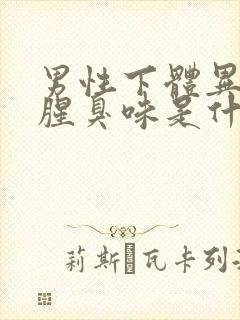 男性下體異
腥臭味是什
莉斯 瓦卡列